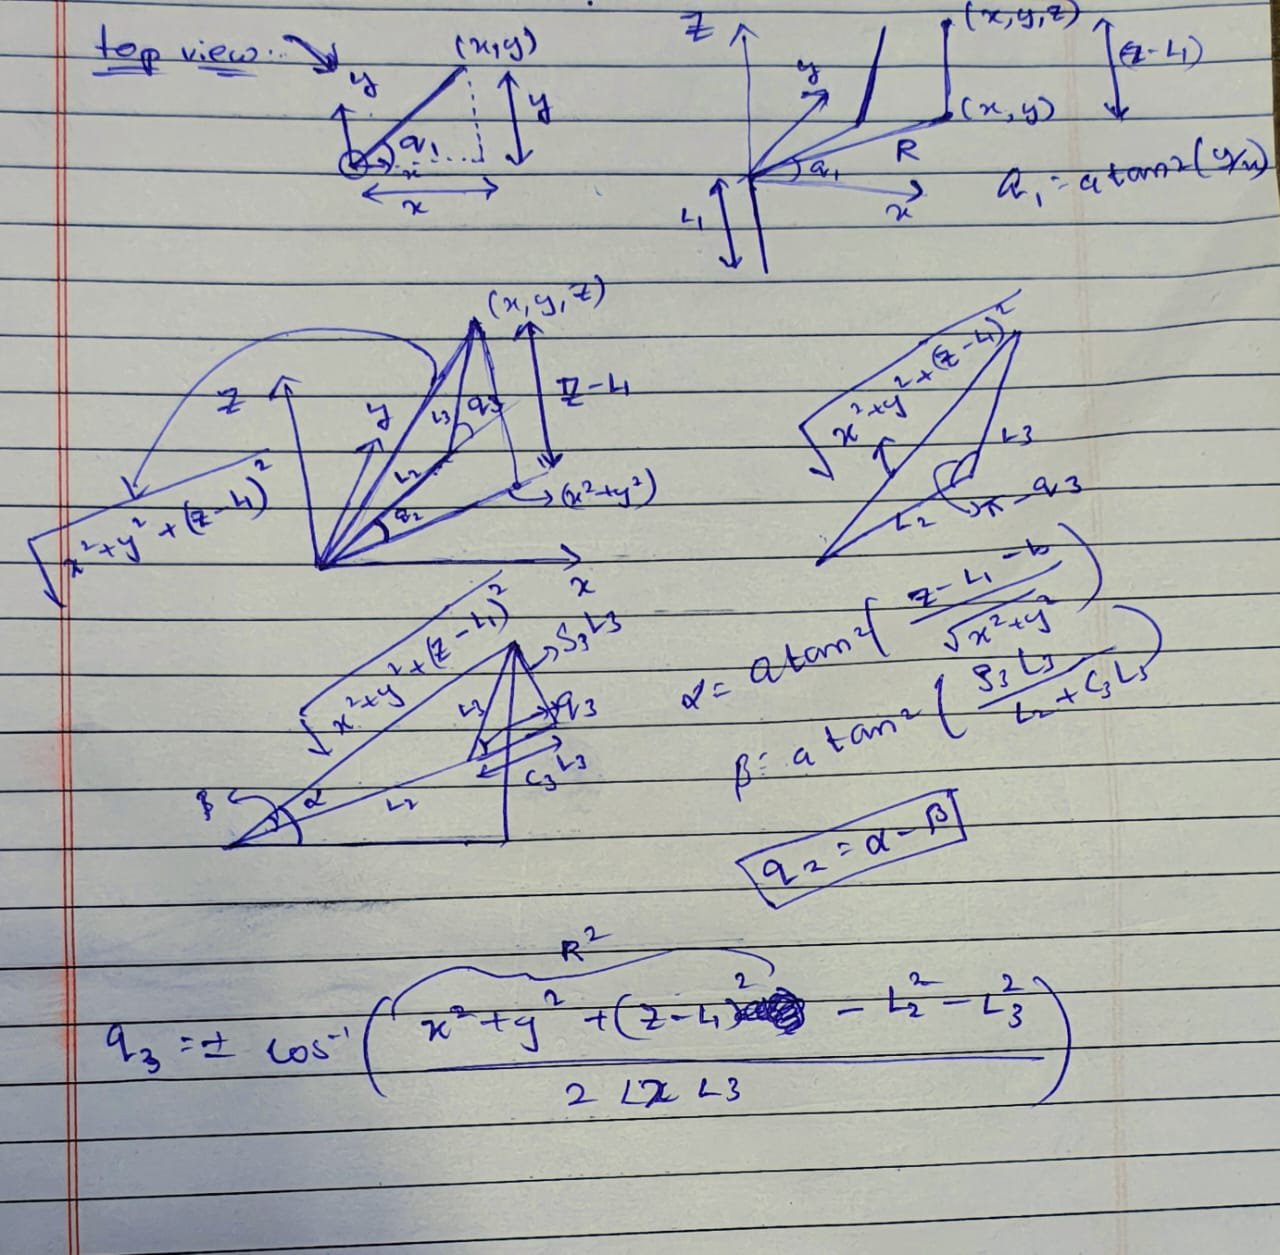 top view:
(x,y)
y
y
q₁
x
x
Z
(x,y,z)
(z-L₁)
y
(x,y)
R
q₁
x
L₁
q₁ = atan2(y/x)
(x,y,z)
Z
y
L3
q3
Z-L₁
L2
q2
(x²+y²)
x
√x²+y²+(z-L₁)²
√x²+y²+(z-L₁)²
L3
L2
π-q3
√x²+y²+(z-L₁)²
S₃L3
L3
q3
C₃L3
β
α
L2
α = atan2(z-L₁-b/√x²+y²)
β = atan2(S₃L₃/L₂+C₃L₃)
q2 = α-β
R²
q₃ = ± cos⁻¹(x²+y²+(z-L₁)² - L₂² - L₃²
2 L2 L3)